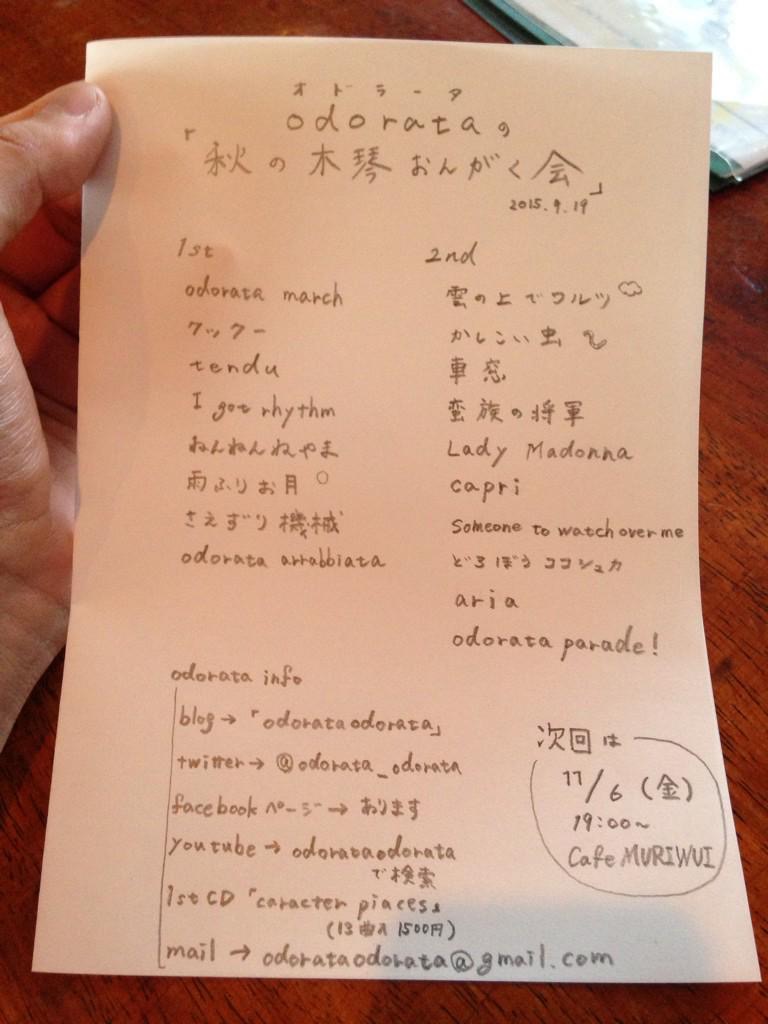 オドラータ
odorataの
「秋の木琴おんがく会」
2015.9.19
1st
odorata march
クックー
tendu
I got rhythm
ねんねんねやま
雨ふりお月
さえずり機械
odorata arrabbiata
2nd
雲の上でワルツ
かしこい虫
車窓
蛮族の将軍
Lady Madonna
capri
Someone to watch over me
どろぼうココシュカ
aria
odorata parade!
odorata info
blog→「odorataodorata」
twitter→ @odorata_odorata
facebookページ→ あります
youtube→ odorataodorata
で検索
1st CD「caracter piaces」
(13曲入 1500円)
mail → odorataodorata@gmail.com
次回は
11/6 (金)
19:00~
Cafe MURIWUI